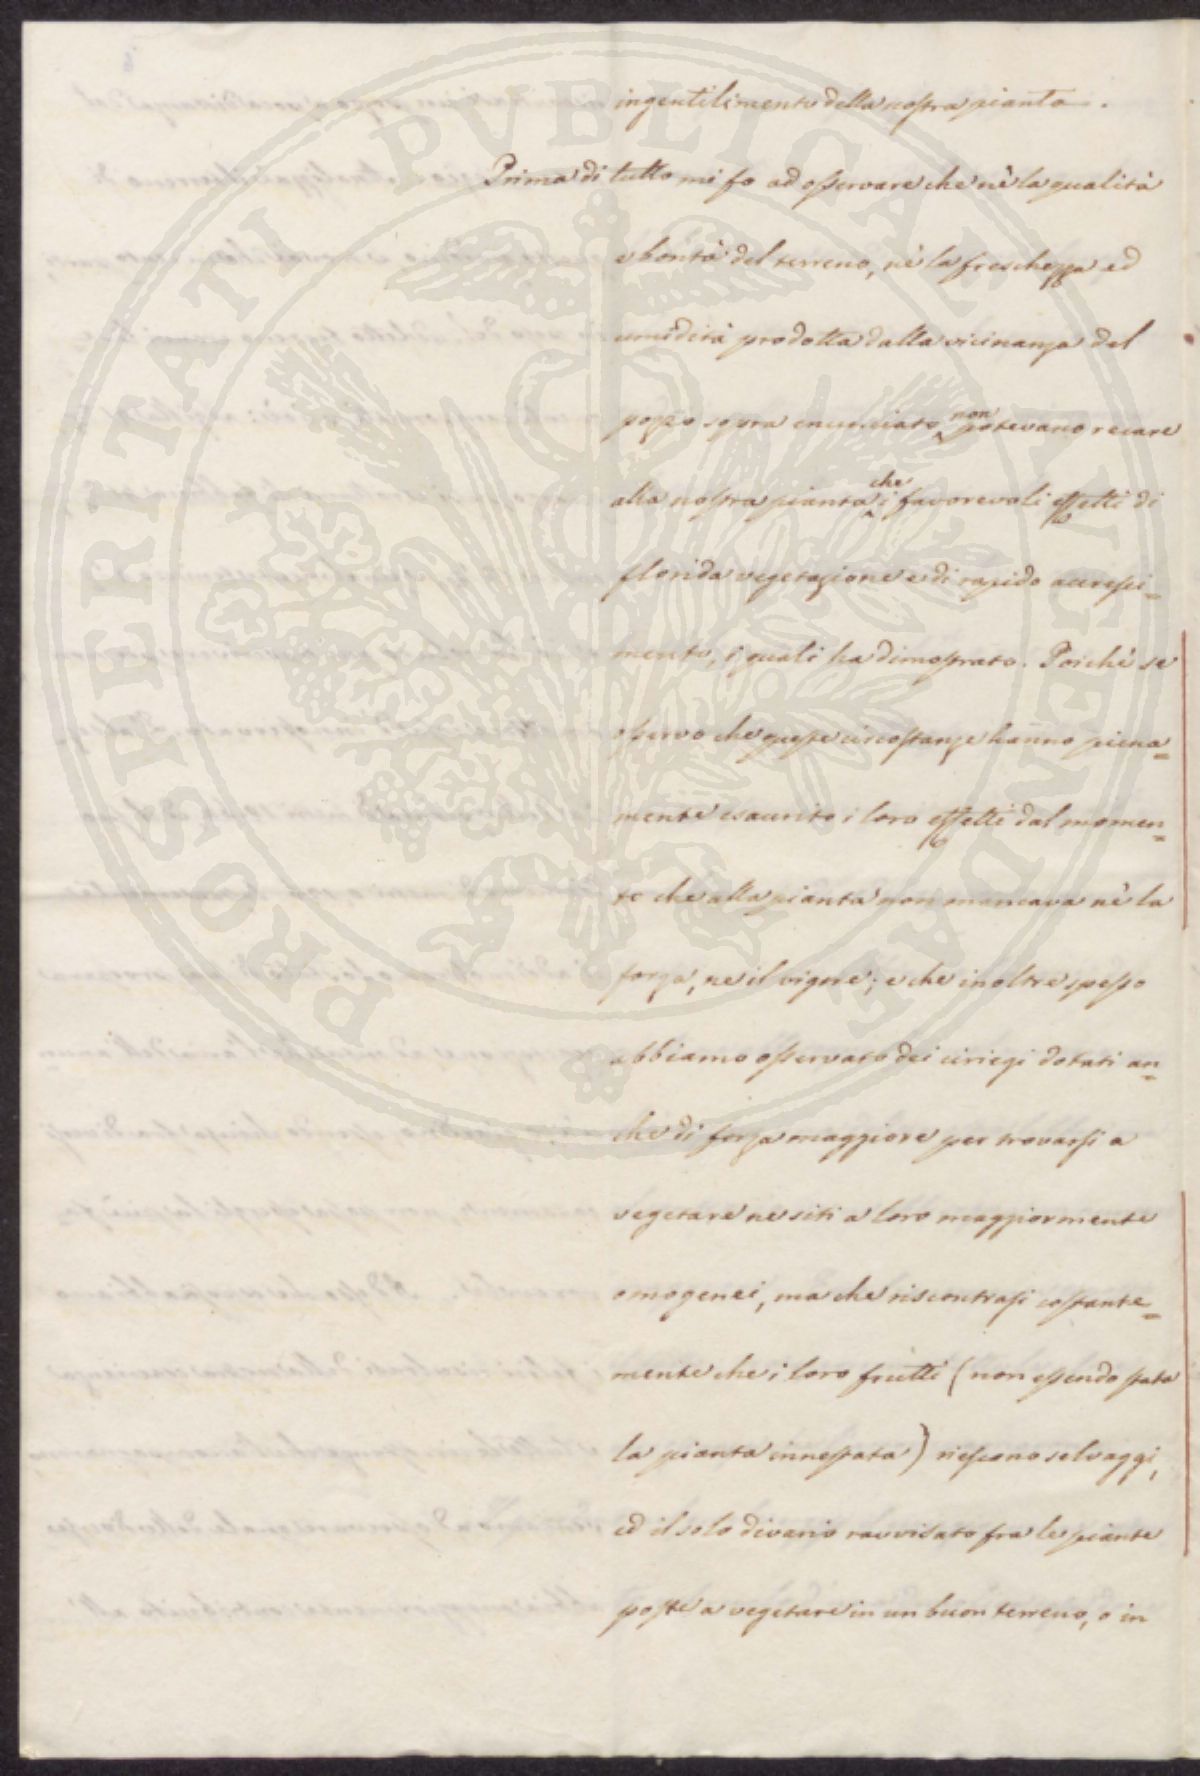 ingentilimento della nostra pianta.
Prima di tutto mi fo ad osservare che nè la qualità
e bontà del terreno, nè la freschezza ed
umidità prodotta dalla vicinanza del
pozzo sopra enunciato non potevano recare
alla nostra pianta che i favorevoli effetti di
florida vegetazione e di rapido accresci=
mento, i quali ha dimostrato. Poichè se
osservo che queste circostanze hanno piena=
mente esaurito i loro effetti dal momen=
to che alla pianta non mancava nè la
forza, ne il vigore; e che inoltre spesso
abbiamo osservato dei ciriegi dotati an=
che di forza maggiore per trovarsi a
vegetare ne siti a loro maggiormente
omogenei, ma che riscontrasi costante=
mente che i loro frutti (non essendo stata
la pianta innestata) riescono selvaggi,
ed il solo divario ravvisato fra le piante
poste a vegetare in un buon terreno, o in
PROSPERITATI PVBLICAE AVGENDAE